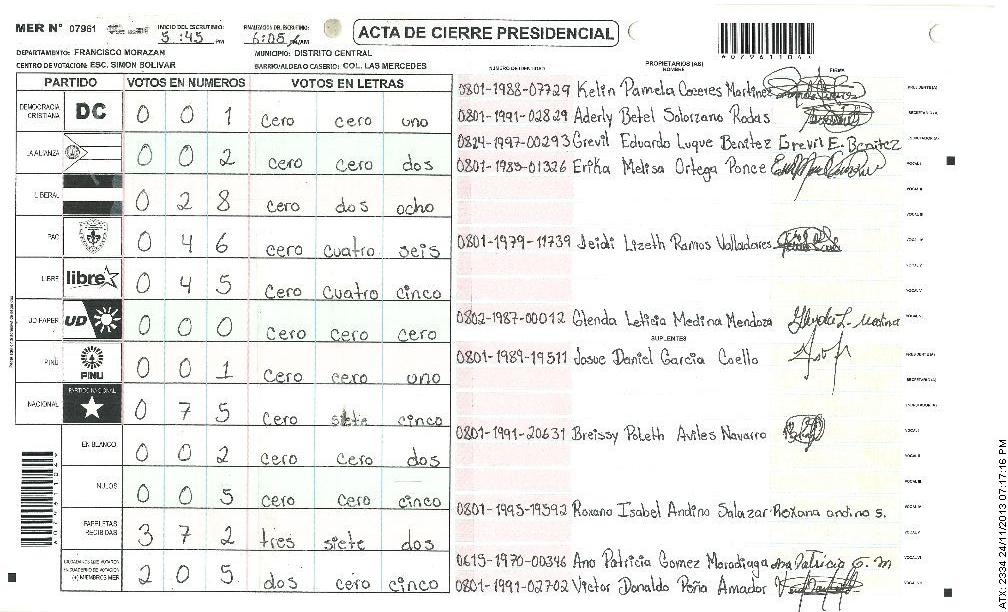 MER N° 07961 INICIO DEL ESCRUTINIO: 5:45 PM FINALIZACION DEL ESCRUTINIO: 6:05 PM/AM ACTA DE CIERRE PRESIDENCIAL
DEPARTAMENTO: FRANCISCO MORAZAN MUNICIPIO: DISTRITO CENTRAL
CENTRO DE VOTACION: ESC. SIMON BOLIVAR BARRIO/ALDEA O CASERIO: COL. LAS MERCEDES
PARTIDO VOTOS EN NUMEROS VOTOS EN LETRAS
DEMOCRACIA CRISTIANA DC 0 0 1 cero cero uno
LA ALIANZA 0 0 2 cero cero dos
LIBERAL 0 2 8 cero dos ocho
PAC 0 4 6 cero cuatro seis
LIBRE libre 0 4 5 cero cuatro cinco
UD FAPER UD 0 0 0 cero cero cero
PINU PINU 0 0 1 cero cero uno
NACIONAL PARTIDO NACIONAL 0 7 5 cero siete cinco
EN BLANCO 0 0 2 cero cero dos
NULOS 0 0 5 cero cero cinco
PAPELETAS RECIBIDAS 3 7 2 tres siete dos
CIUDADANOS QUE VOTARON (+) MIEMBROS MER 2 0 5 dos cero cinco
NUMERO DE IDENTIDAD PROPIETARIOS (AS) NOMBRE FIRMA
0801-1988-07729 Kelin Pamela Caceres Martinez PRESIDENTE(A)
0801-1991-02829 Aderly Betel Solorzano Rodas SECRETARIO(A)
0824-1997-00293 Grevil Eduardo Luque Benitez Grevil E. Benitez
0801-1985-01326 Erika Melisa Ortega Ponce VOCAL I
0801-1979-11739 Jeidi Lizeth Ramos Valladares
0802-1987-00012 Glenda Leticia Medina Mendoza Glenda L. Medina
SUPLENTES
0801-1989-19511 Josue Daniel Garcia Coello PRESIDENTE(A)
SECRETARIO(A)
0801-1991-20631 Breissy Poleth Aviles Navarro VOCAL I
0801-1995-19592 Roxana Isabel Andino Salazar Roxana andino s.
0615-1970-00346 Ana Patricia Gomez Maradiaga Ana Patricia G. M
0801-1991-02702 Victor Donaldo Peña Amador
ATX: 2334 24/11/2013 07:17:16 PM